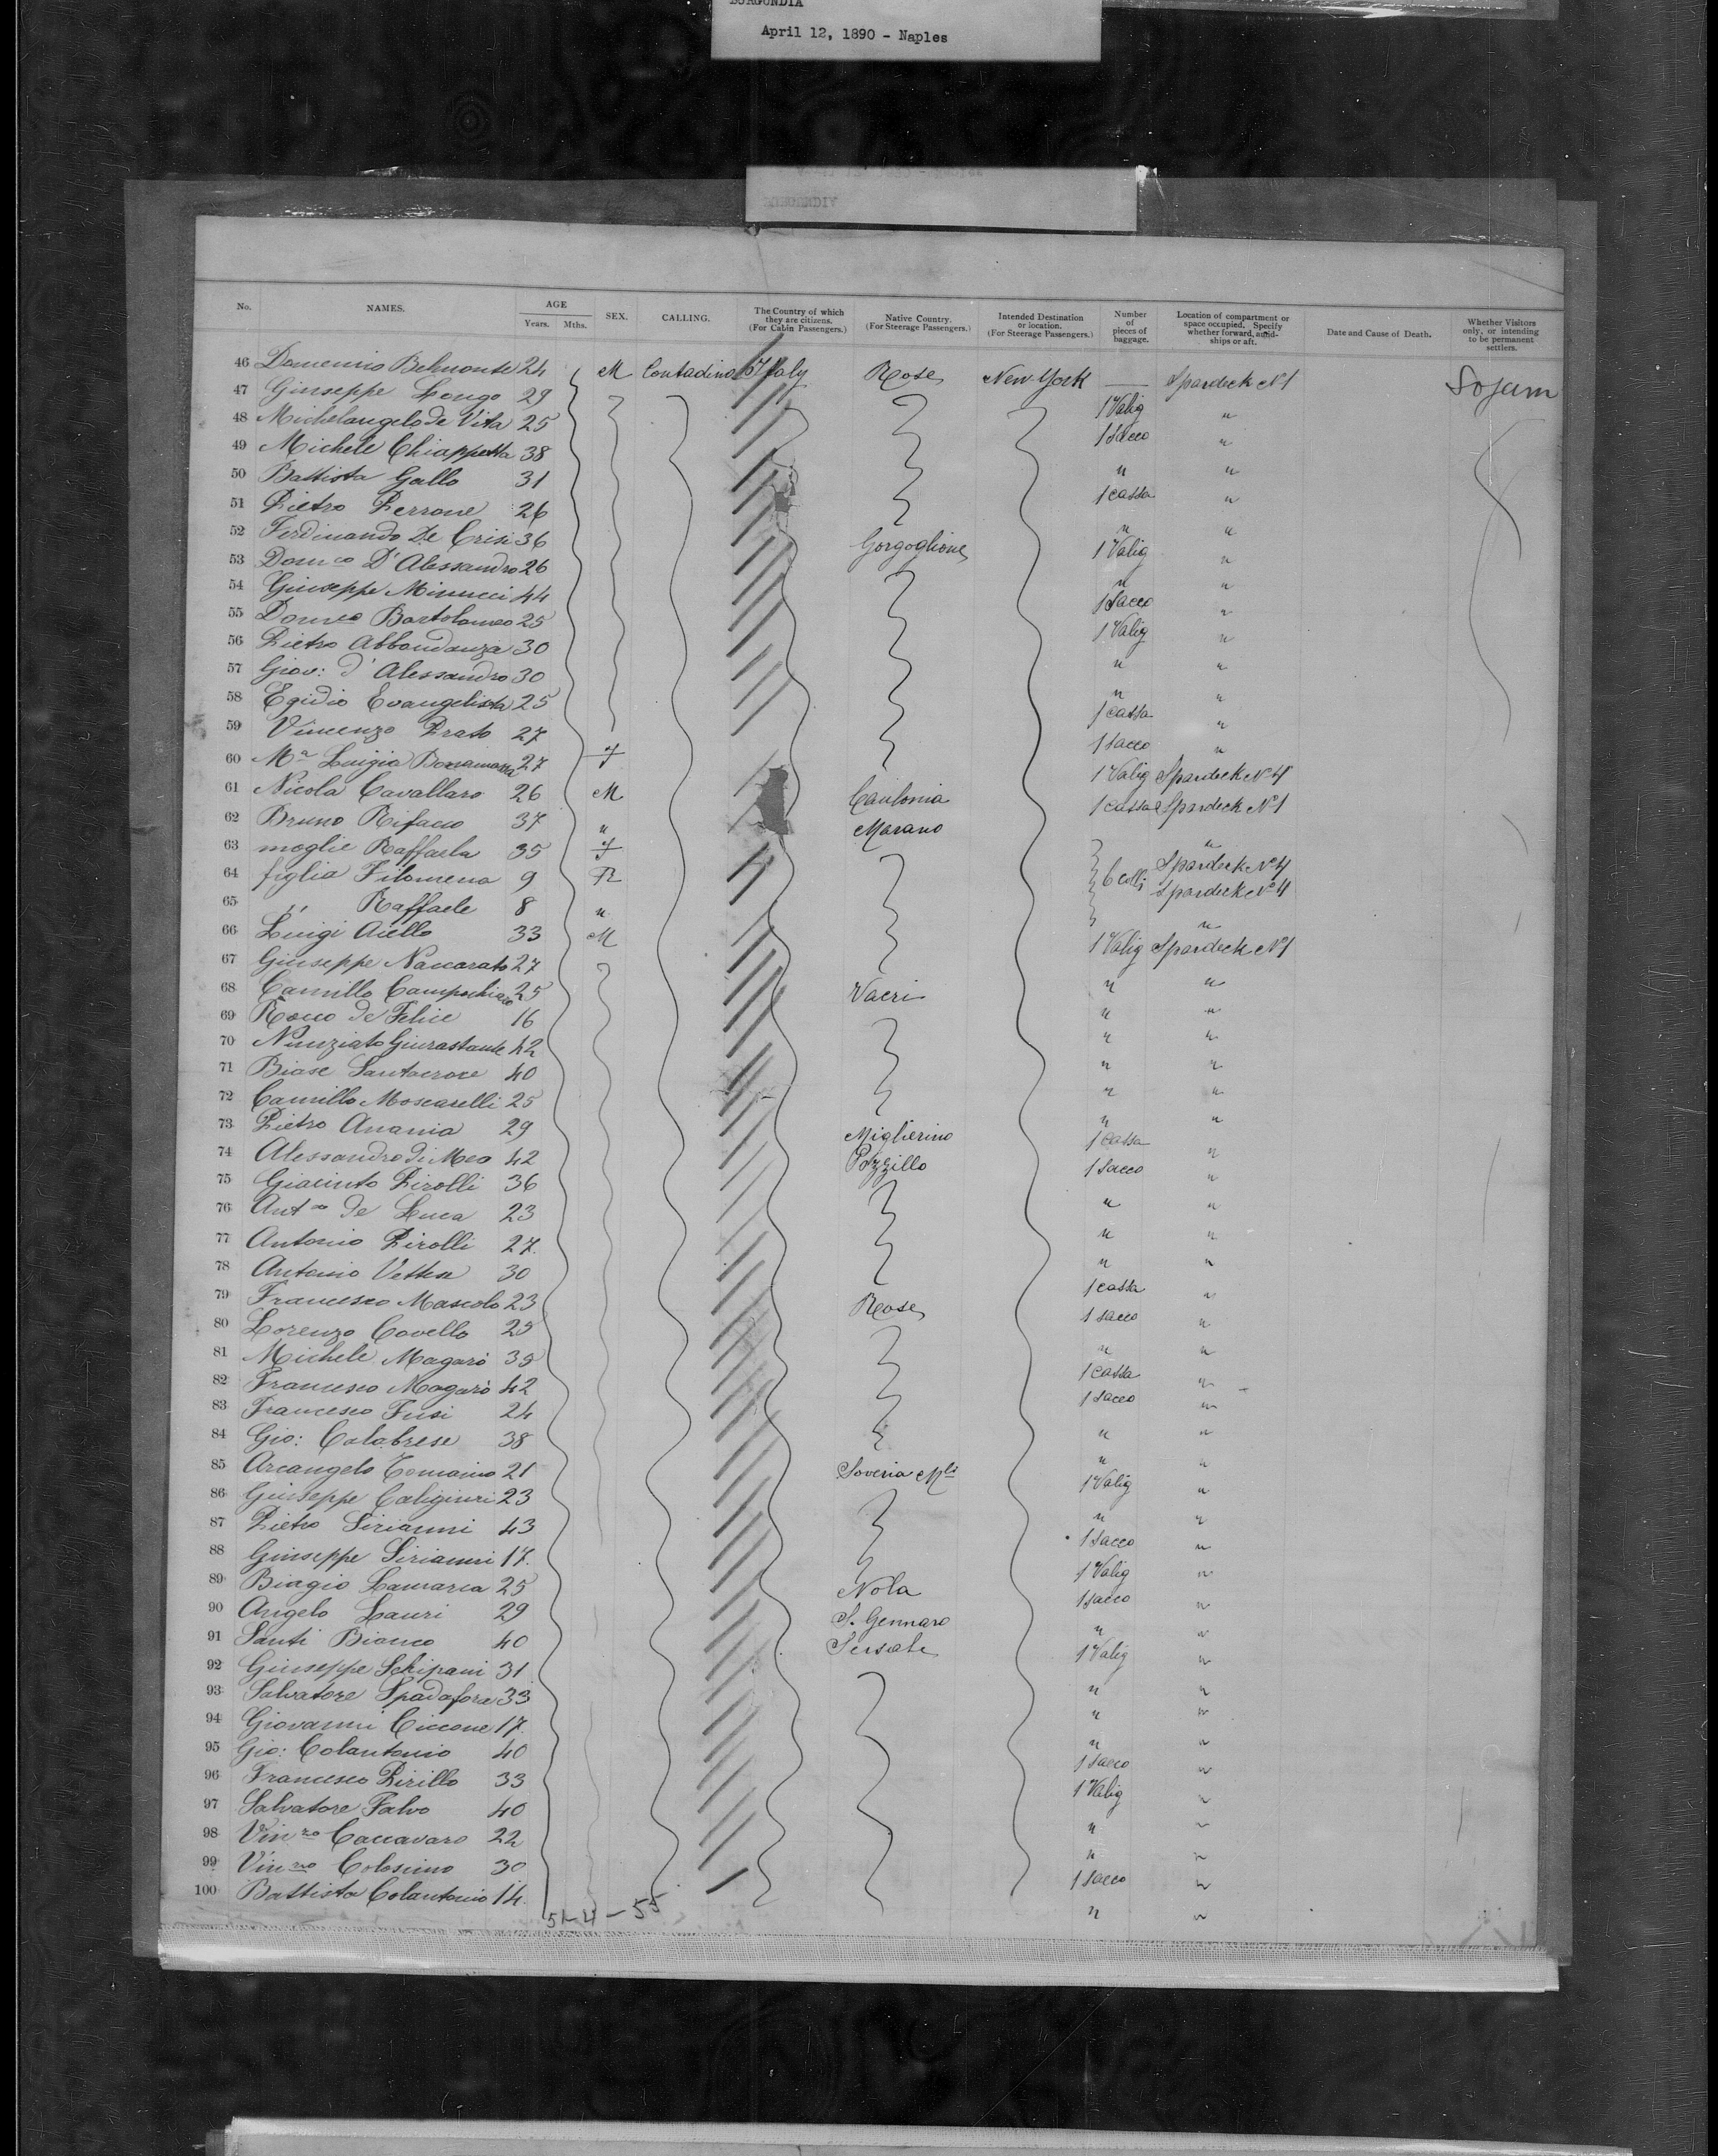 BURGUNDIA
April 12, 1890 - Naples
No. NAMES. AGE Years. Mths. SEX. CALLING. The Country of which they are citizens. (For Cabin Passengers.) Native Country. (For Steerage Passengers.) Intended Destination or location. (For Steerage Passengers.) Number of pieces of baggage. Location of compartment or space occupied. Specify whether forward, amid-ships or aft. Date and Cause of Death. Whether Visitors only, or intending to be permanent settlers.
46 Domenico Belmonte 24 M Contadino Italy Rose New York — Spardeck N1 Sojurn
47 Giuseppe Longo 29 1 Valig "
48 Michelangelo de Vita 25 1 Sacco "
49 Michele Chiappetta 38 " "
50 Battista Gallo 31 1 cassa "
51 Pietro Perrone 26 " "
52 Ferdinando De Crisi 36 Gorgoglione 1 Valig "
53 Domco D'Alessandro 26 " "
54 Giuseppe Minucci 44 1 Sacco "
55 Domco Bartolomeo 25 1 Valig "
56 Pietro Abbondanza 30 " "
57 Giov: d'Alessandro 30 " "
58 Egidio Evangelista 25 1 cassa "
59 Vincenzo Prato 27 1 Sacco "
60 Ma Luigia 27 f 1 Valig Spardeck No 4
61 Nicola Cavallaro 26 M Caulonia 1 cassa Spardeck No 1
62 Bruno Rifacco 37 " Marano "
63 moglie Raffaela 35 f Spardeck No 4
64 figlia Filomena 9 6 colli Spardeck No 4
65 " Raffaele 8 " "
66 Luigi Aiello 33 M 1 Valig Spardeck N1
67 Giuseppe Naccarato 27 " "
68 Camillo Campochiaro 25 Vacri " "
69 Rocco de Felice 16 " "
70 Nunziato Giurastante 42 " "
71 Biase Santacroce 40 " "
72 Camillo Moscarelli 25 " "
73 Pietro Anania 29 Miglierino 1 Cassa "
74 Alessandro di Meo 42 Pozzillo 1 Sacco "
75 Giacinto Pirolli 36 " "
76 Anto de Luca 23 " "
77 Antonio Pirolli 27 " "
78 Antonio Vettese 30 1 cassa "
79 Francesco Mascolo 23 Rose 1 sacco "
80 Lorenzo Covello 25 " "
81 Michele Magarò 35 1 Cassa "
82 Francesco Magarò 42 1 Sacco "
83 Francesco Fusi 24 " "
84 Gio: Calabrese 38 " "
85 Arcangelo Tomaino 21 Soveria Mli 1 Valig "
86 Giuseppe Caligiuri 23 " "
87 Pietro Sirianni 43 1 Sacco "
88 Giuseppe Sirianni 17 1 Valig "
89 Biagio Lamarca 25 Nola 1 Sacco "
90 Angelo Lauri 29 S. Gennaro " "
91 Santi Bianco 40 Sersale 1 Valig "
92 Giuseppe Schipani 31 " "
93 Salvatore Spadafora 33 " "
94 Giovanni Ciccone 17 " "
95 Gio: Colantonio 40 1 Sacco "
96 Francesco Pirillo 33 1 Valig "
97 Salvatore Falvo 40 " "
98 Vinzo Caccavaro 22 " "
99 Vinzo Colosimo 30 1 Sacco "
100 Battista Colantonio 14 " "
51-4-55